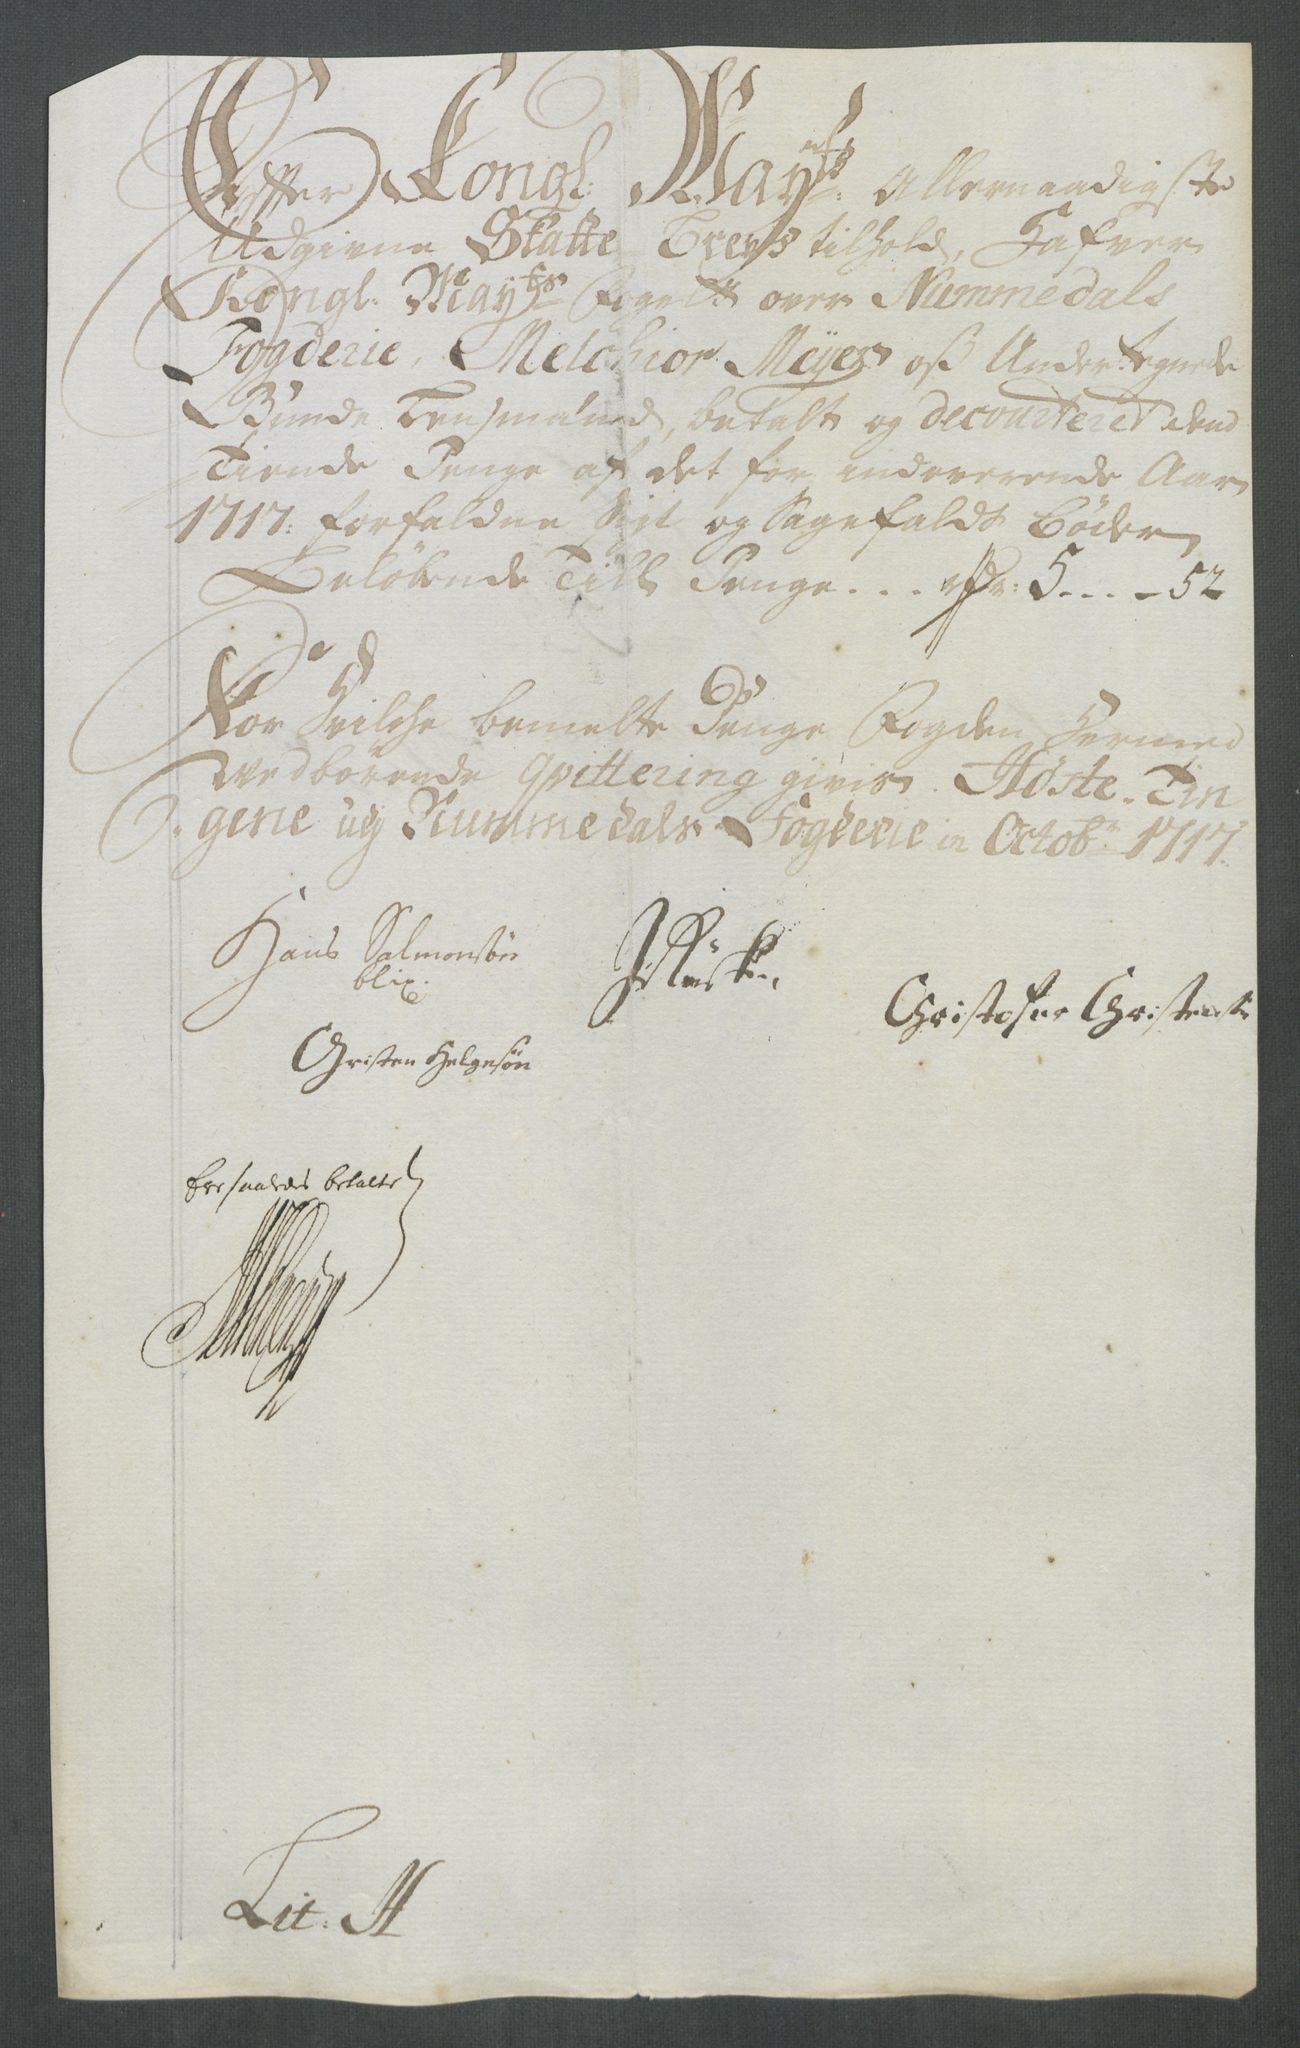 Effter Kongl: May:ts Allernaadigste
Udgivne Skatte Brevs tilhold, Hafver
Kongl: May:ts Foget over Nummedals
Fogderie, Melchior Meyer oss Under tegnede
Bunde Lensmænd, betalt og decourteret dend
Tiende Penge af det for indeverende Aar
1717: forfaldne Sigt og Sagefalds Bøder
Beløbende Till Penge... Rdr: 5.... - 52
For Hvilche bemelte Penge Fogden Hermed
vedbørende qvittering givis. Høste-Tin
gene udj Nummedals Fogderie in Octobr 1717
Hans Salmonsøn
blix.
Christopher Christensen
Christen Helgesøn
Lit: H